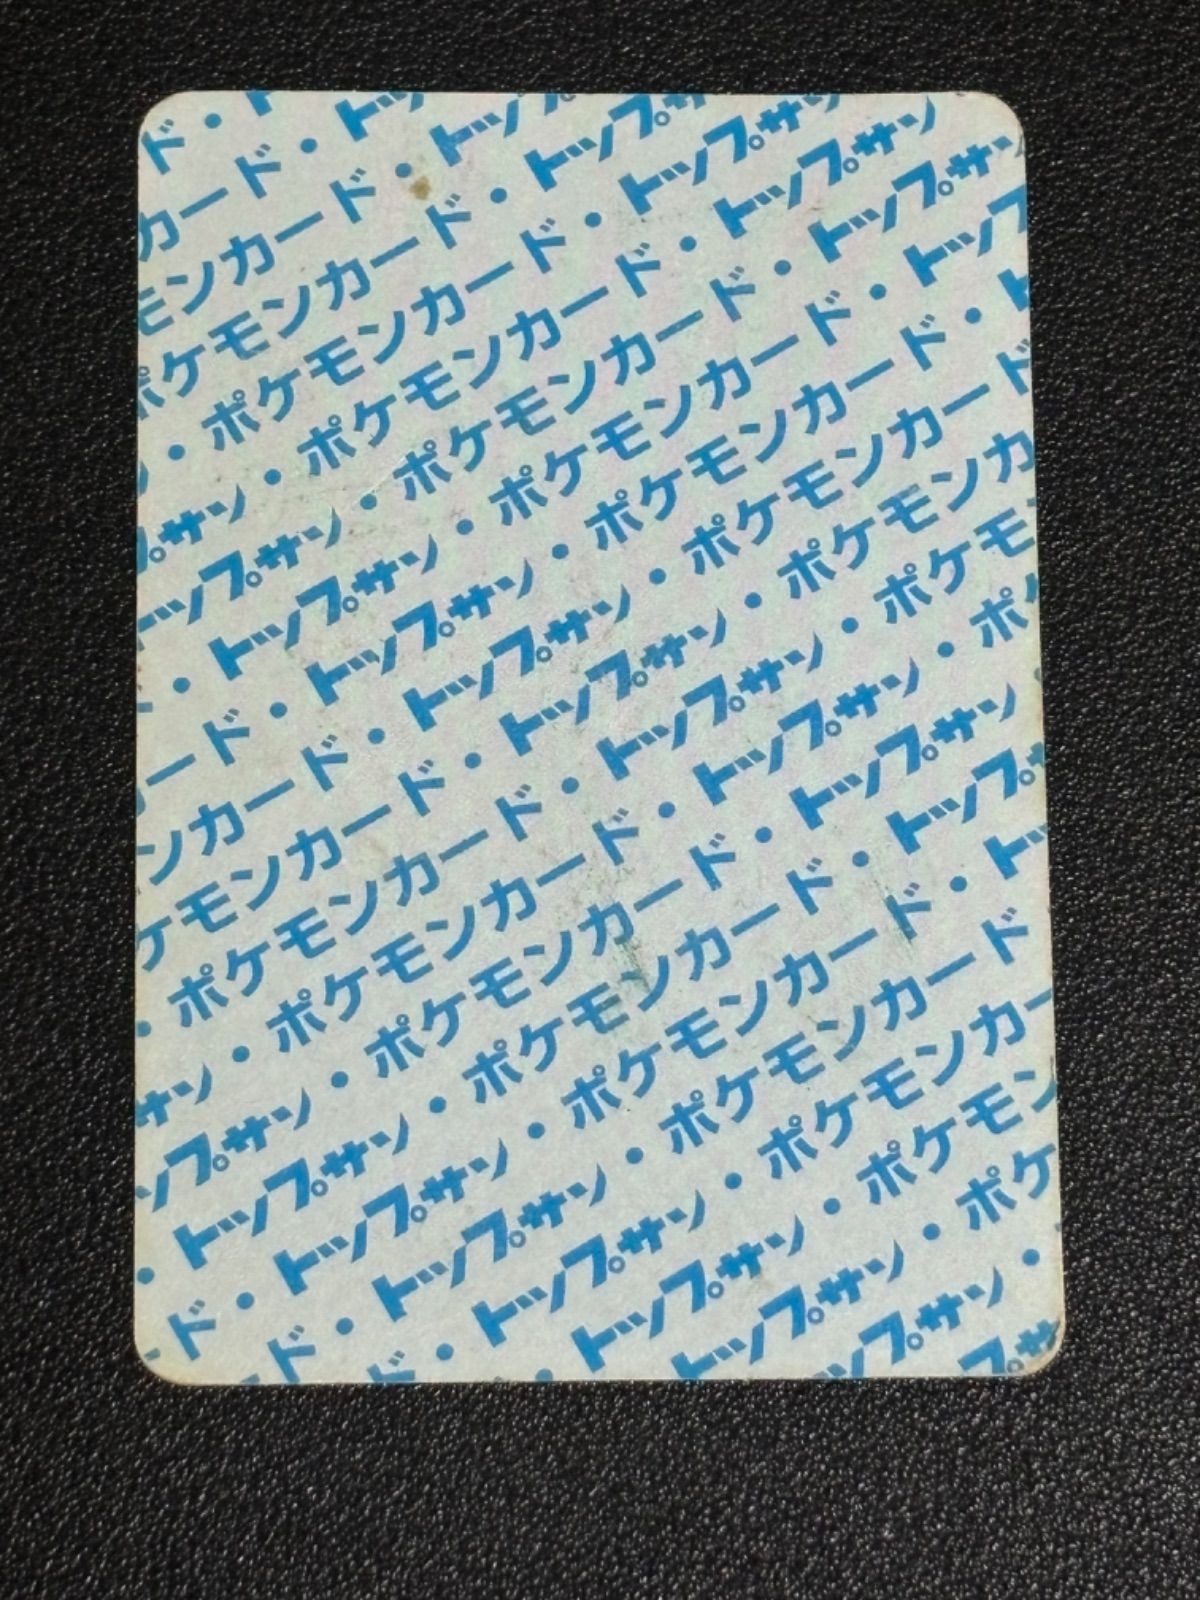 ド・ト
カード・トッ
モンカード・トップ
ポケモンカード・トップサ
・ポケモンカード・トップサン
プサン・ポケモンカード・トップサン
トップサン・ポケモンカード・トップ
・トップサン・ポケモンカード・ト
ード・トップサン・ポケモンカード
ンカード・トップサン・ポケモンカ
ケモンカード・トップサン・ポケモ
・ポケモンカード・トップサン・ポケ
サン・ポケモンカード・トップサン
ップサン・ポケモンカード・トップ
・トップサン・ポケモンカード・ト
ド・トップサン・ポケモンカード
ド・トップサン・ポケモンカー
ド・トップサン・ポケモン
・トップサン・ポケ
トップサン・
ップサン